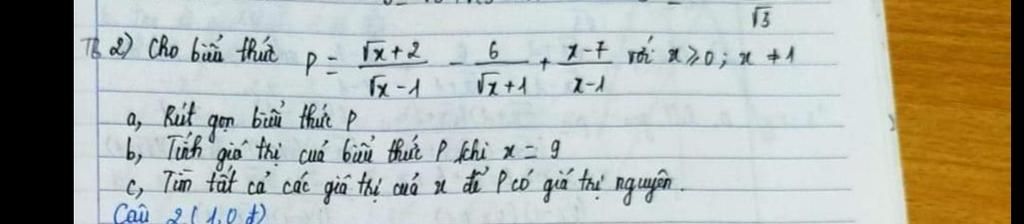 √3
2) Cho biểu thức P = (√x + 2)/(√x - 1) - 6/(√x + 1) + (x - 7)/(x - 1) với x ≥ 0 ; x ≠ 1
a, Rút gọn biểu thức P
b, Tính giá trị cuả biểu thức P khi x = 9
c, Tìm tất cả các giá trị cuả x để P có giá trị nguyên.
Câu 2 (1,0 đ)